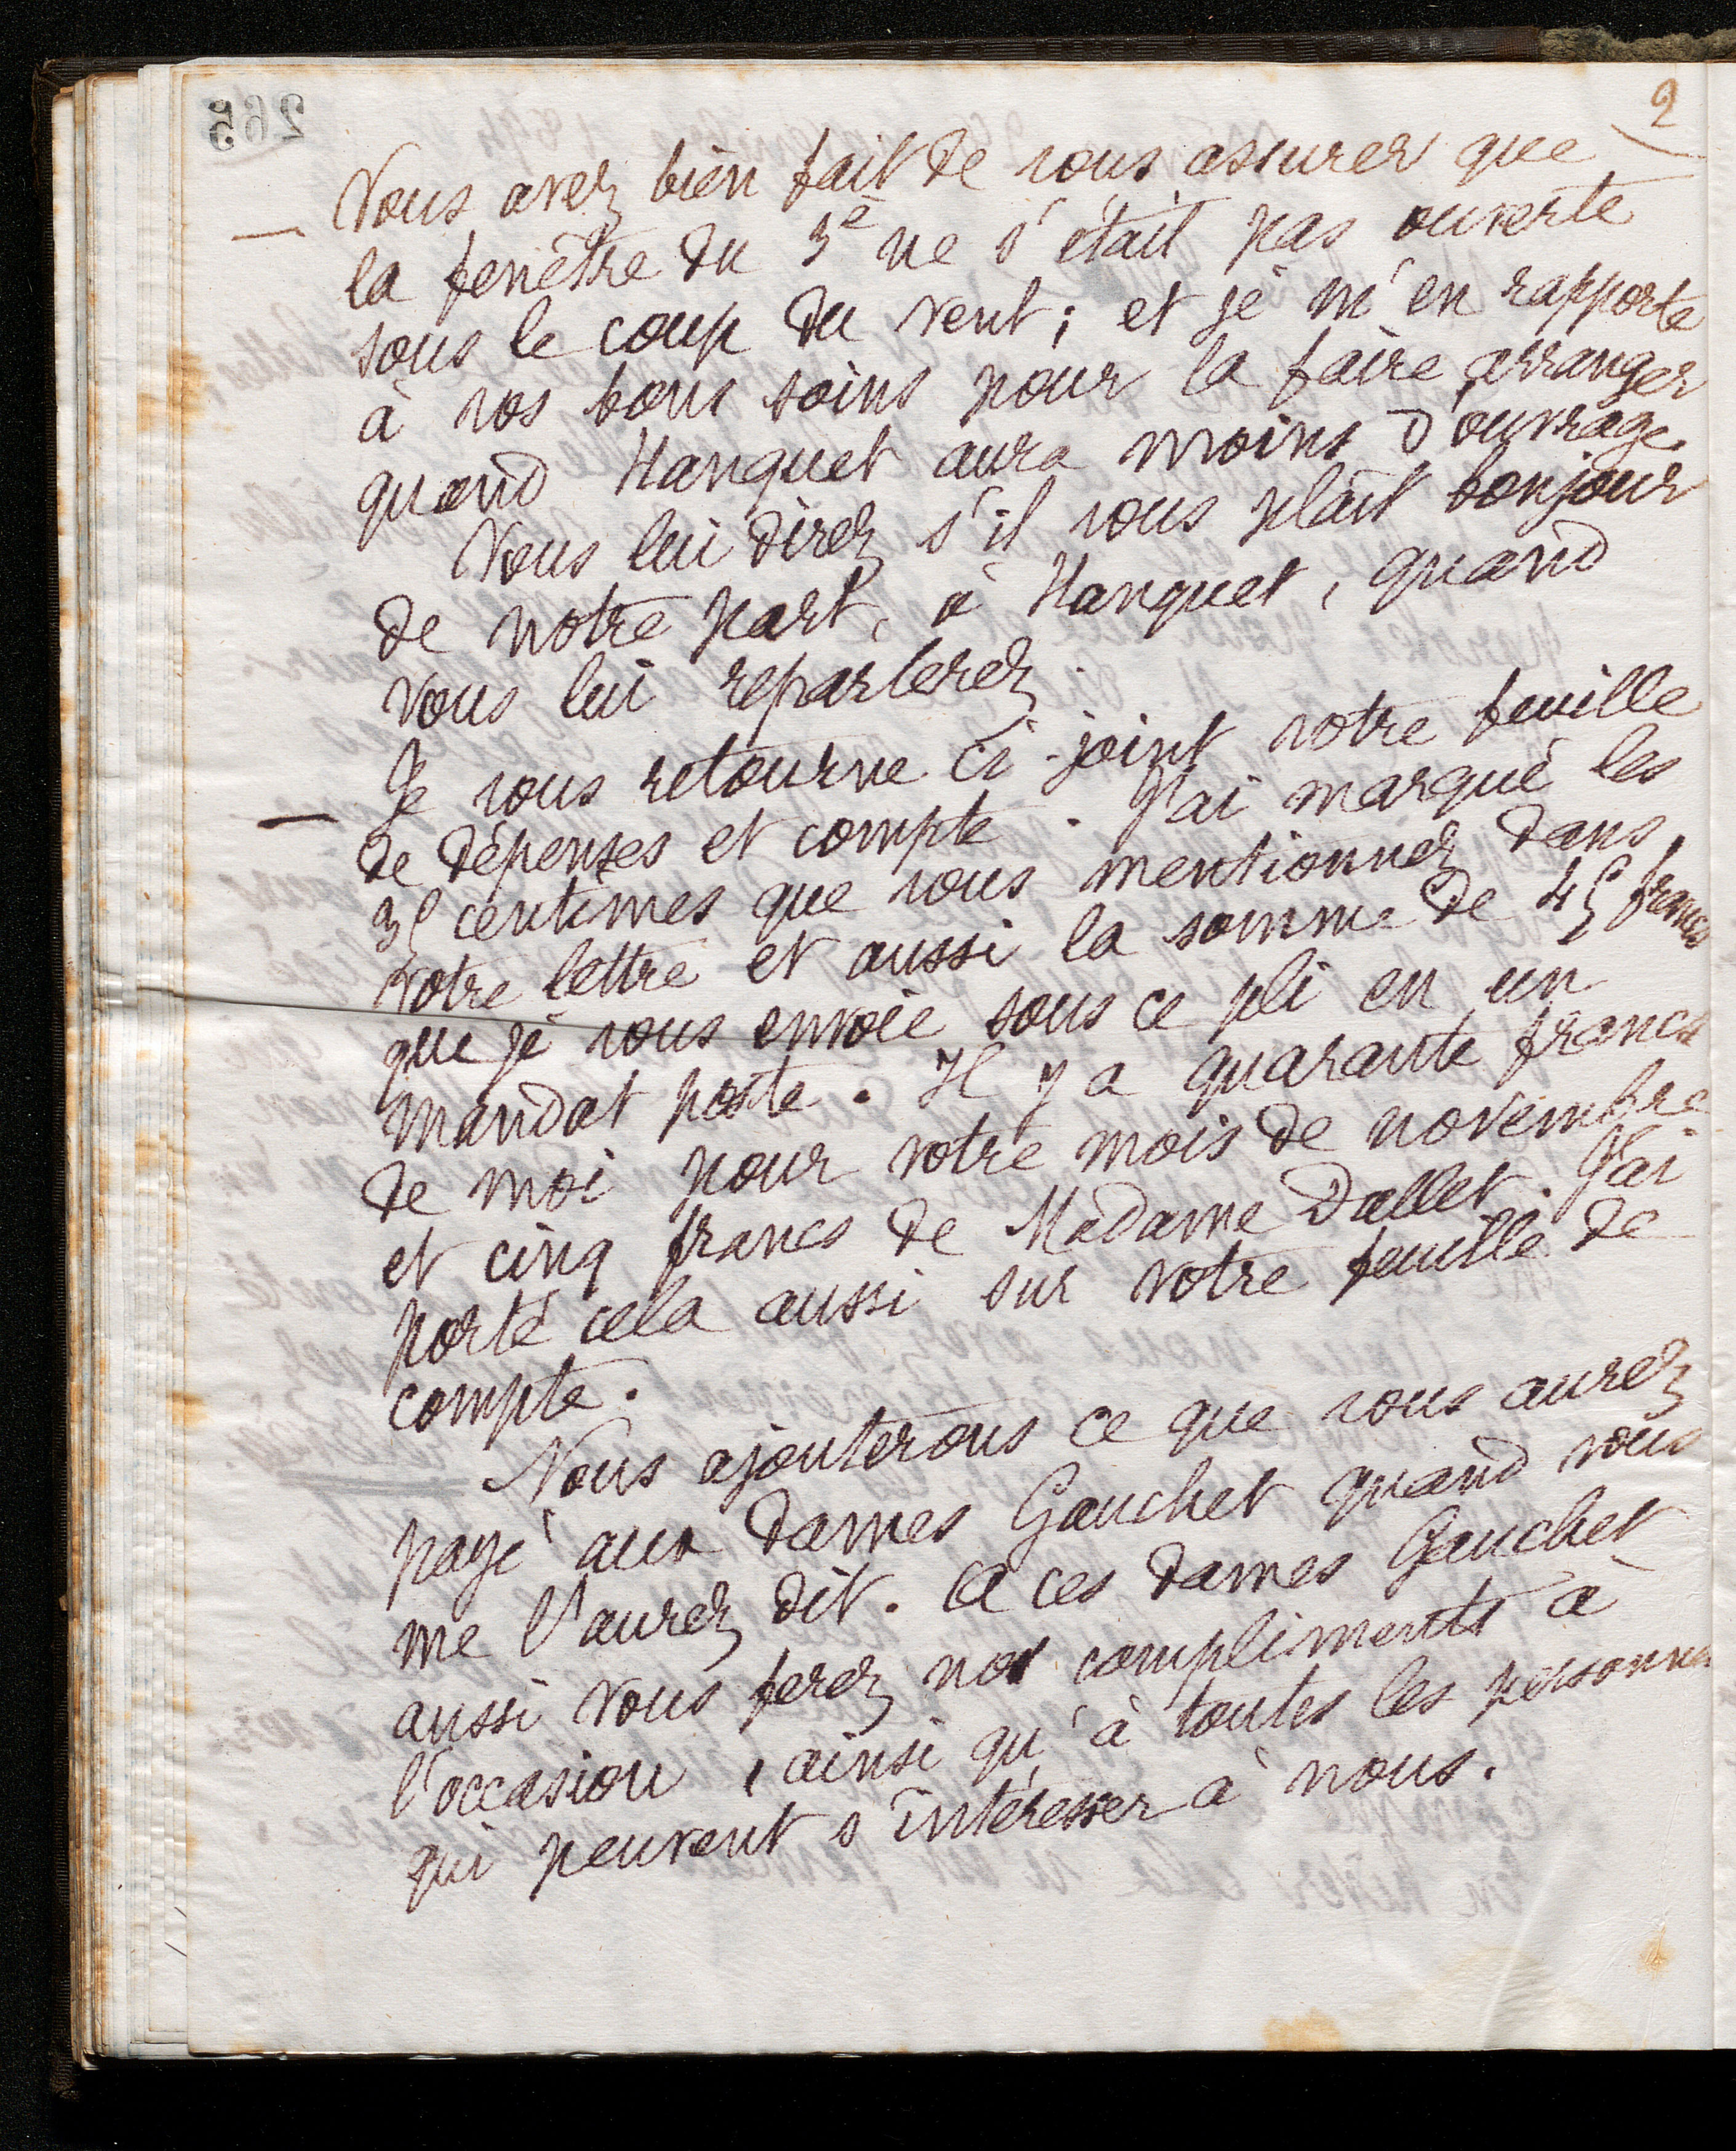 2
— Vous avez bien fait de vous assurer que
la fenêtre du 3e ne s'était pas ouverte
sous le coup du vent ; et je m'en rapporte
à vos bons soins pour la faire arranger
quand Hanquet aura moins d'ouvrage.
Vous lui direz s'il vous plaît bonjour
de notre part, à Hanquet, quand
vous lui reparlerez.
— Je vous retourne ci-joint votre feuille
de dépenses et compte. J'ai marqué les
35 centimes que vous mentionnez dans
votre lettre et aussi la somme de 45 francs
que je vous envoie sous ce pli en un
mandat poste. Il y a quarante francs
de moi pour votre mois de novembre
et cinq francs de Madame Dallet. J'ai
porté cela aussi sur votre feuille de
compte.
Nous ajouterons ce que vous aurez
payé aux dames Gauchet quand vous
me l'aurez dit. A ces dames Gauchet
aussi vous ferez nos compliments à
l'occasion, ainsi qu'à toutes les personnes
qui peuvent s'intéresser à nous.